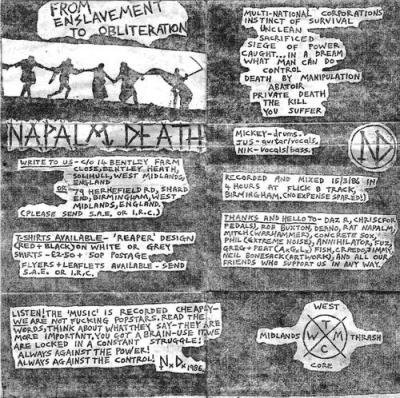 FROM
ENSLAVEMENT
TO OBLITERATION
NAPALM DEATH
WRITE TO US - C/O 14 BENTLEY FARM
CLOSE, BENTLEY HEATH,
SOLIHULL, WEST MIDLANDS,
ENGLAND
OR 79 HERNEFIELD RD, SHARD
END, BIRMINGHAM, WEST
MIDLANDS, ENGLAND,
(PLEASE SEND S.A.E. OR I.R.C.)
T-SHIRTS AVAILABLE - 'REAPER' DESIGN
(RED + BLACK) ON WHITE OR GREY
SHIRTS - £2.50 + 50P POSTAGE
FLYERS + LEAFLETS AVAILABLE - SEND
S.A.E. OR I.R.C.
LISTEN! THE 'MUSIC' IS RECORDED CHEAPLY-
WE ARE NOT FUCKING POPSTARS, READ THE
WORDS, THINK ABOUT WHAT THEY SAY - THEY ARE
MORE IMPORTANT, YOU GOT A BRAIN - USE IT, WE
ARE LOCKED IN A CONSTANT STRUGGLE!
ALWAYS AGAINST THE POWER!
ALWAYS AGAINST THE CONTROL! NxDx 1986.
MULTI-NATIONAL CORPORATIONS
INSTINCT OF SURVIVAL
UNCLEAN
SACRIFICED
SIEGE OF POWER
CAUGHT... IN A DREAM
WHAT MAN CAN DO
CONTROL
DEATH BY MANIPULATION
ABATOIR
PRIVATE DEATH
THE KILL
YOU SUFFER
MICKEY - drums.
JUS - guitar/vocals.
NIK - vocals/bass.
ND
RECORDED AND MIXED 15/3/86 IN
4 HOURS AT FLICK 8 TRACK,
BIRMINGHAM, (NO EXPENSE SPARED!)
THANKS AND HELLO TO - DAZ R, CHRIS (FOR
PEDALS), ROB BUXTON, DEANO, RAT NAPALM,
MITCH (WARHAMMER), CONCRETE SOX,
PHIL (EXTREME NOISE), ANNIHILATOR, FUZ,
GREG + PEAT (AxGxLx) FISH, JIMMY
NEIL BONESACK (ARTWORK), AND ALL OUR
FRIENDS WHO SUPPORT US IN ANY WAY.
WEST
MIDLANDS
T W M C
THRASH
CORE